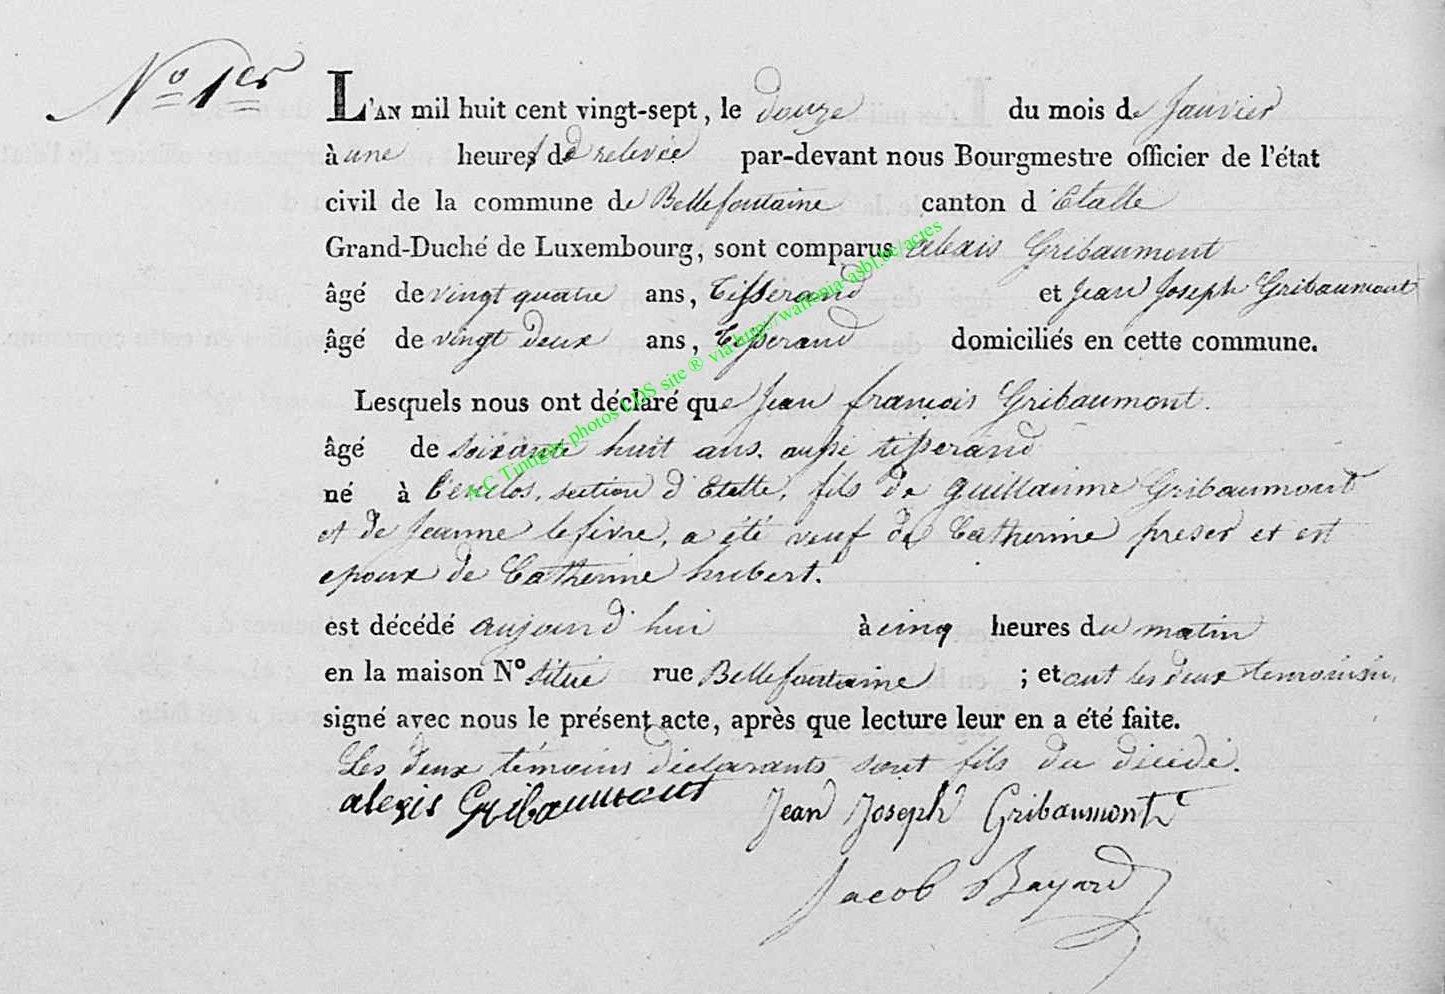 No 1er
L'AN mil huit cent vingt-sept, le douze du mois de Janvier
à une heures de relevée par-devant nous Bourgmestre officier de l'état
civil de la commune de Bellefontaine canton d'Etalle
Grand-Duché de Luxembourg, sont comparus alexis Gribaumont
âgé de vingt quatre ans, Tisserand et Jean Joseph Gribaumont
âgé de vingt deux ans, Tisserand domiciliés en cette commune.
Lesquels nous ont déclaré que Jean françois Gribaumont.
âgé de soixante huit ans. aussi tisserand
né à section d'Etalle, fils de guillaume Gribaumont
et de Jeanne lefivre, a été veuf de Catherine preser et est
epoux de Catherine hubert.
est décédé aujourd'hui à cinq heures du matin
en la maison No située rue Bellefontaine ; et ont les deux temoins
signé avec nous le présent acte, après que lecture leur en a été faite.
Les deux témoins déclarants sont fils du décédé.
alexis Gribaumont Jean Joseph Gribaumont
Jacob Bayard
AC Tintigny photos LDS site ® via http://wallonia-asbl.be/actes